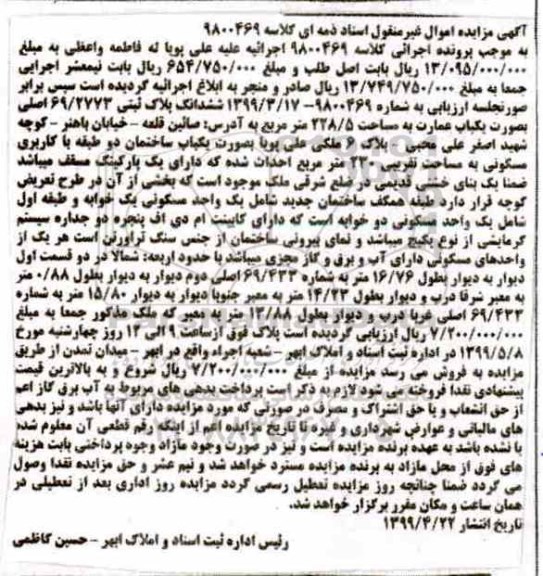 آگهی مزایده اموال غیرمنقول اسناد ذمه ای کلاسه ۹۸۰۰۴۶۹
به موجب پرونده اجرائی کلاسه ۹۸۰۰۴۶۹ اجرائیه علیه علی پویا له فاطمه واعظی به مبلغ
۱۳/۰۹۵/۰۰۰/۰۰۰ ریال بابت اصل طلب و مبلغ ۶۵۴/۷۵۰/۰۰۰ ریال بابت نیمعشر اجرایی
جمعا به مبلغ ۱۳/۷۴۹/۷۵۰/۰۰۰ ریال صادر و منجر به ابلاغ اجرائیه گردیده است سپس برابر
صورتجلسه ارزیابی به شماره ۹۸۰۰۴۶۹- ۱۳۹۹/۳/۱۷ ششدانگ پلاک ثبتی ۶۹/۲۷۷۳ اصلی
بصورت یکباب عمارت به مساحت ۲۲۸/۵ متر مربع به آدرس: صائین قلعه - خیابان باهنر - کوچه
شهید اصغر علی محبی - پلاک ۶ ملکی علی پویا بصورت یکباب ساختمان دو طبقه با کاربری
مسکونی به مساحت تقریبی ۲۳۰ متر مربع احداث شده که دارای یک پارکینگ مسقف میباشد
ضمنا یک بنای خشتی قدیمی در ضلع شرقی ملک موجود است که بخشی از آن در طرح تعریض
کوچه قرار دارد طبقه همکف ساختمان جدید شامل یک واحد مسکونی یک خوابه و طبقه اول
شامل یک واحد مسکونی دو خوابه است که دارای کابینت ام دی اف پنجره دو جداره سیستم
گرمایشی از نوع پکیج میباشد و نمای بیرونی ساختمان از جنس سنگ تراورتن است هر یک از
واحدهای مسکونی دارای آب و برق و گاز مجزی میباشد با حدود اربعه: شمالا در دو قسمت اول
دیوار به دیوار بطول ۱۶/۷۶ متر به شماره ۶۹/۴۳۳ اصلی دوم دیوار به دیوار بطول ۰/۸۸ متر
به معبر شرقا درب و دیوار بطول ۱۴/۲۳ متر به معبر جنوبا دیوار به دیوار ۱۵/۸۰ متر به شماره
۶۹/۴۳۳ اصلی غربا درب و دیوار بطول ۱۳/۸۸ متر به معبر که ملک مذکور جمعا به مبلغ
۷/۲۰۰/۰۰۰/۰۰۰ ریال ارزیابی گردیده است پلاک فوق ازساعت ۹ الی ۱۲ روز چهارشنبه مورخ
۱۳۹۹/۵/۸ در اداره ثبت اسناد و املاک ابهر - شعبه اجراء واقع در ابهر - میدان تمدن از طریق
مزایده به فروش می رسد مزایده از مبلغ ۷/۲۰۰/۰۰۰/۰۰۰ ریال شروع و به بالاترین قیمت
پیشنهادی نقدا فروخته می شود لازم به ذکر است پرداخت بدهی های مربوط به آب برق گاز اعم
از حق انشعاب و یا حق اشتراک و مصرف در صورتی که مورد مزایده دارای آنها باشد و نیز بدهی
های مالیاتی و عوارض شهرداری و غیره تا تاریخ مزایده اعم از اینکه رقم قطعی آن معلوم شده
یا نشده باشد به عهده برنده مزایده است و نیز در صورت وجود مازاد وجوه پرداختی بابت هزینه
های فوق از محل مازاد به برنده مزایده مسترد خواهد شد و نیم عشر و حق مزایده نقدا وصول
می گردد ضمنا چنانچه روز مزایده تعطیل رسمی گردد مزایده روز اداری بعد از تعطیلی در
همان ساعت و مکان مقرر برگزار خواهد شد.
تاریخ انتشار ۱۳۹۹/۴/۲۲
رئیس اداره ثبت اسناد و املاک ابهر - حسین کاظمی